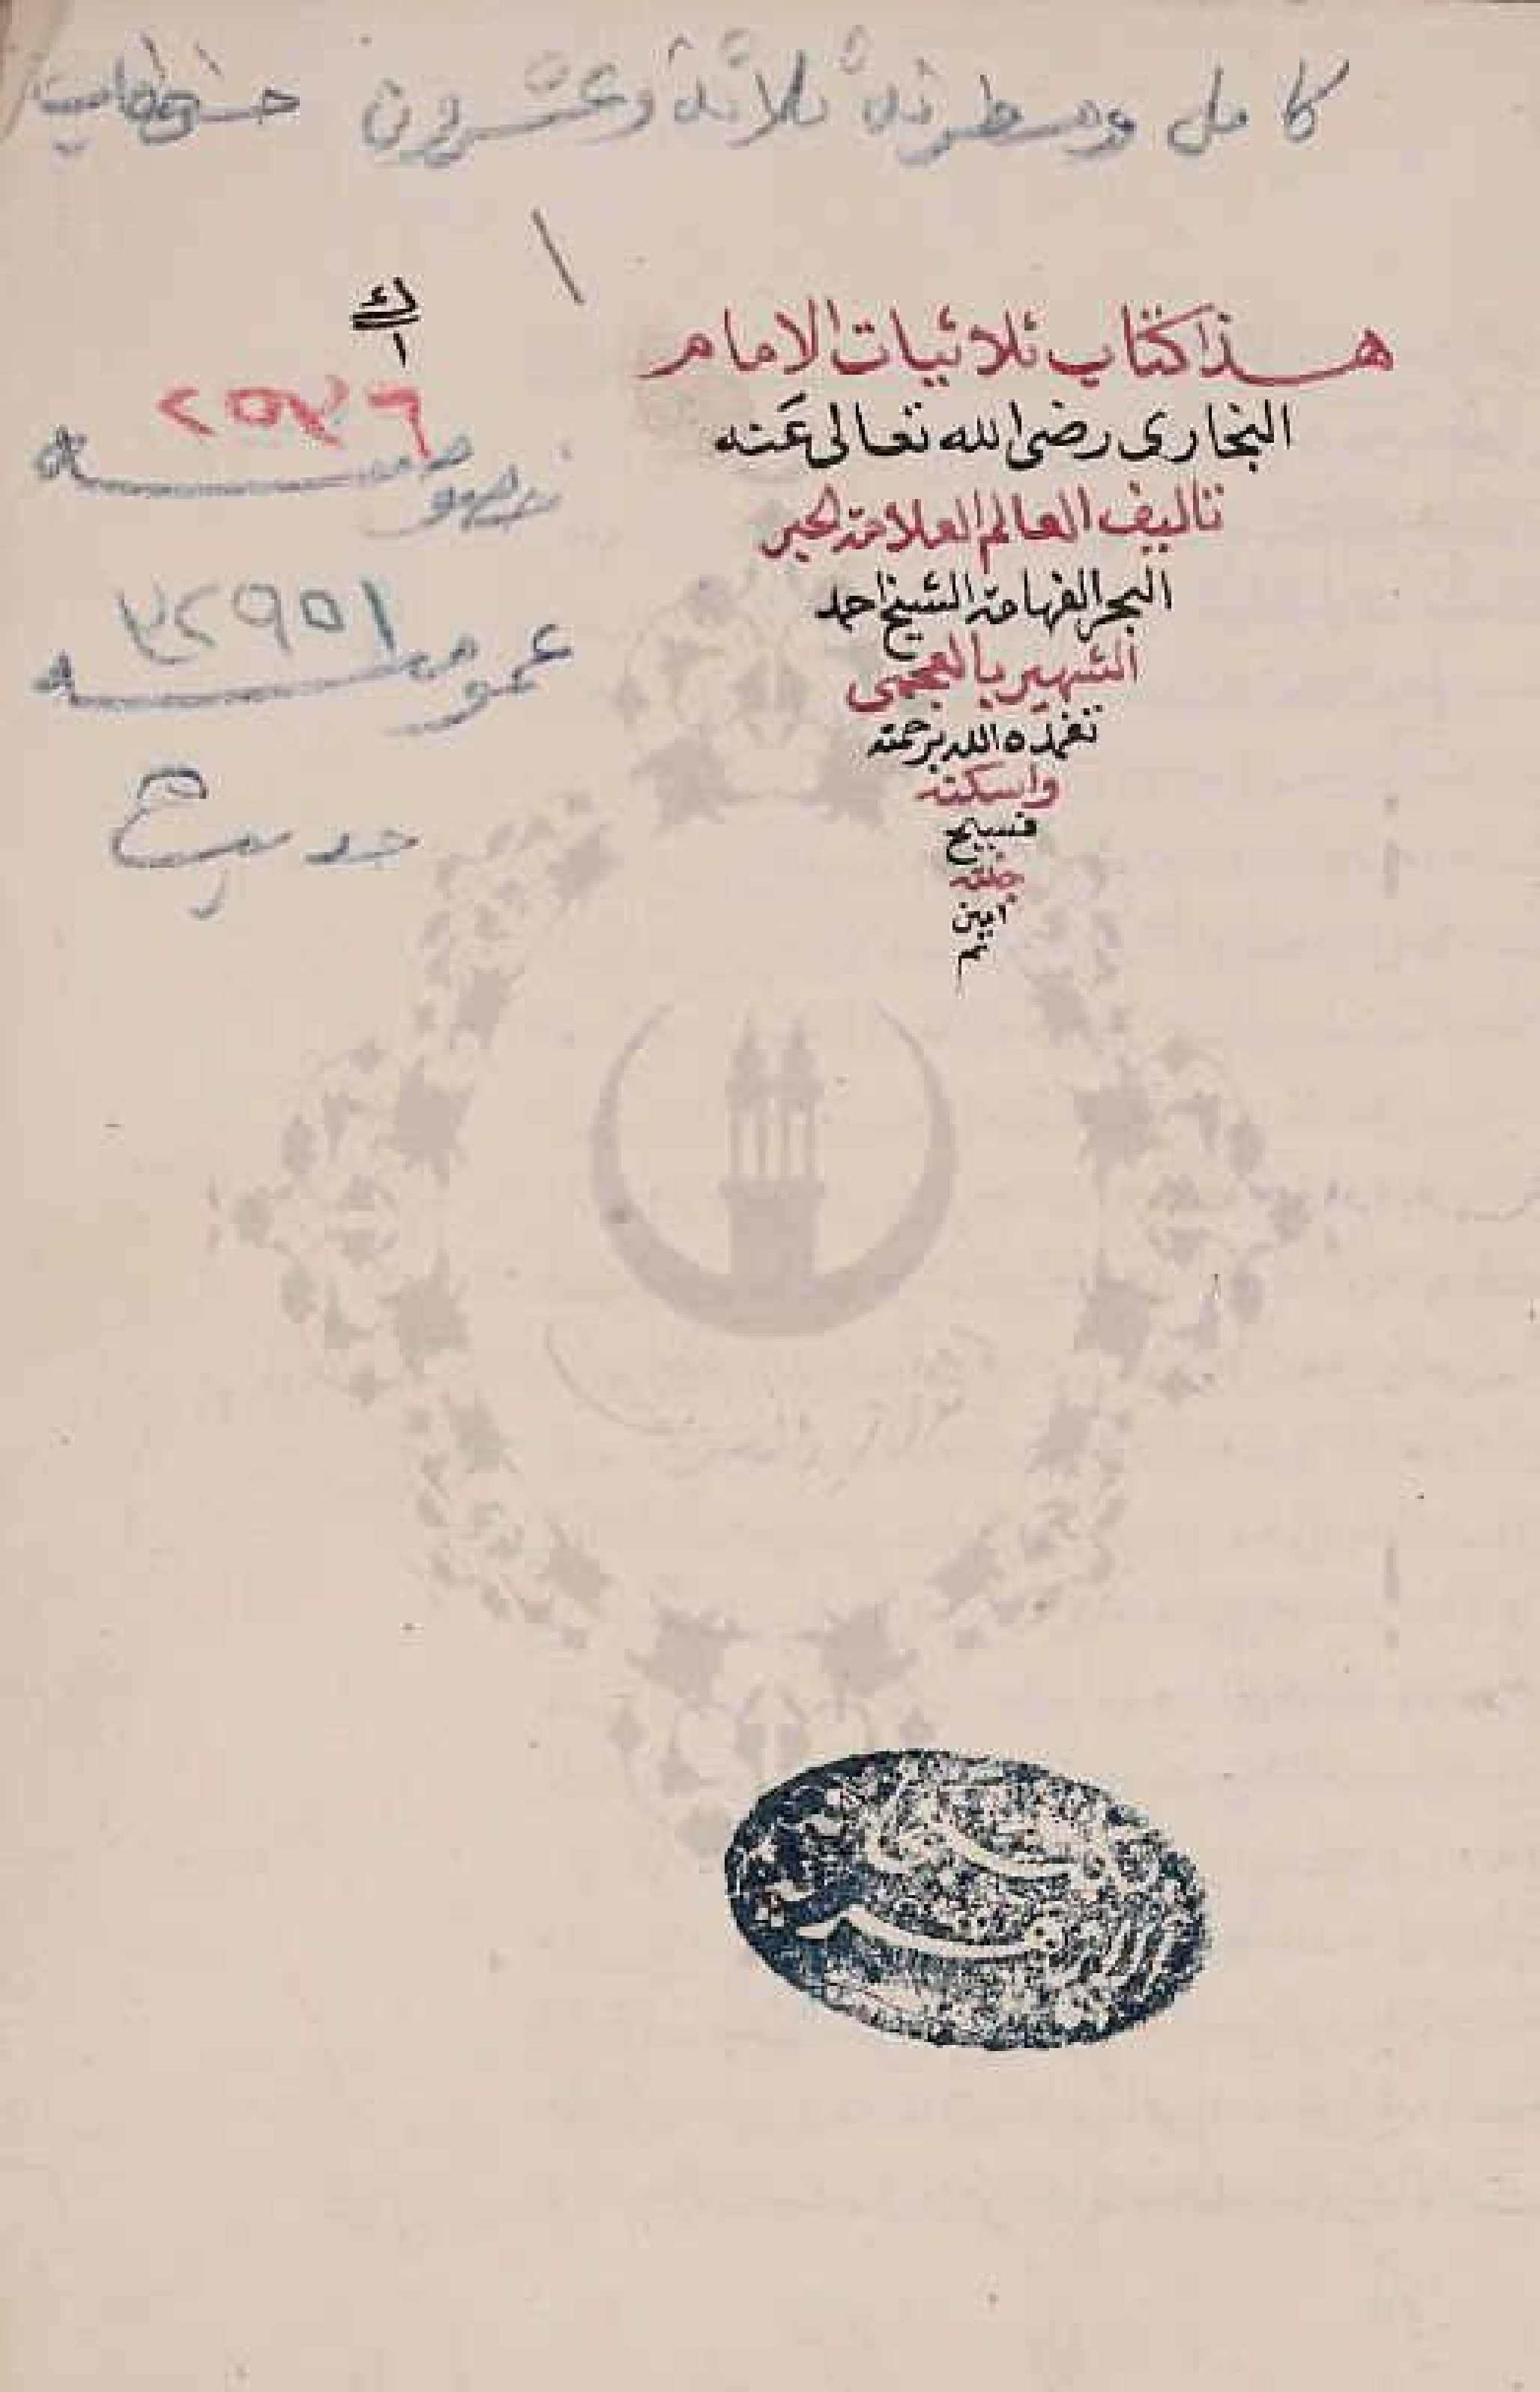 كامل ومسطرته ثلاثة وعشرون
هذا كتاب ثلاثيات الامام
البخارى رضى الله تعالى عَنه
تاليف العالم العلامة الحبر
البحر الفهامة الشيخ احمد
الشهير بالعجمى
تغمده الله برحمته
واسكنه
فسيح
جنته
امين
تم
١
ك
١
٢٥٧٦
خصوصيه
٣٢٩٥١
عموميه
حديث